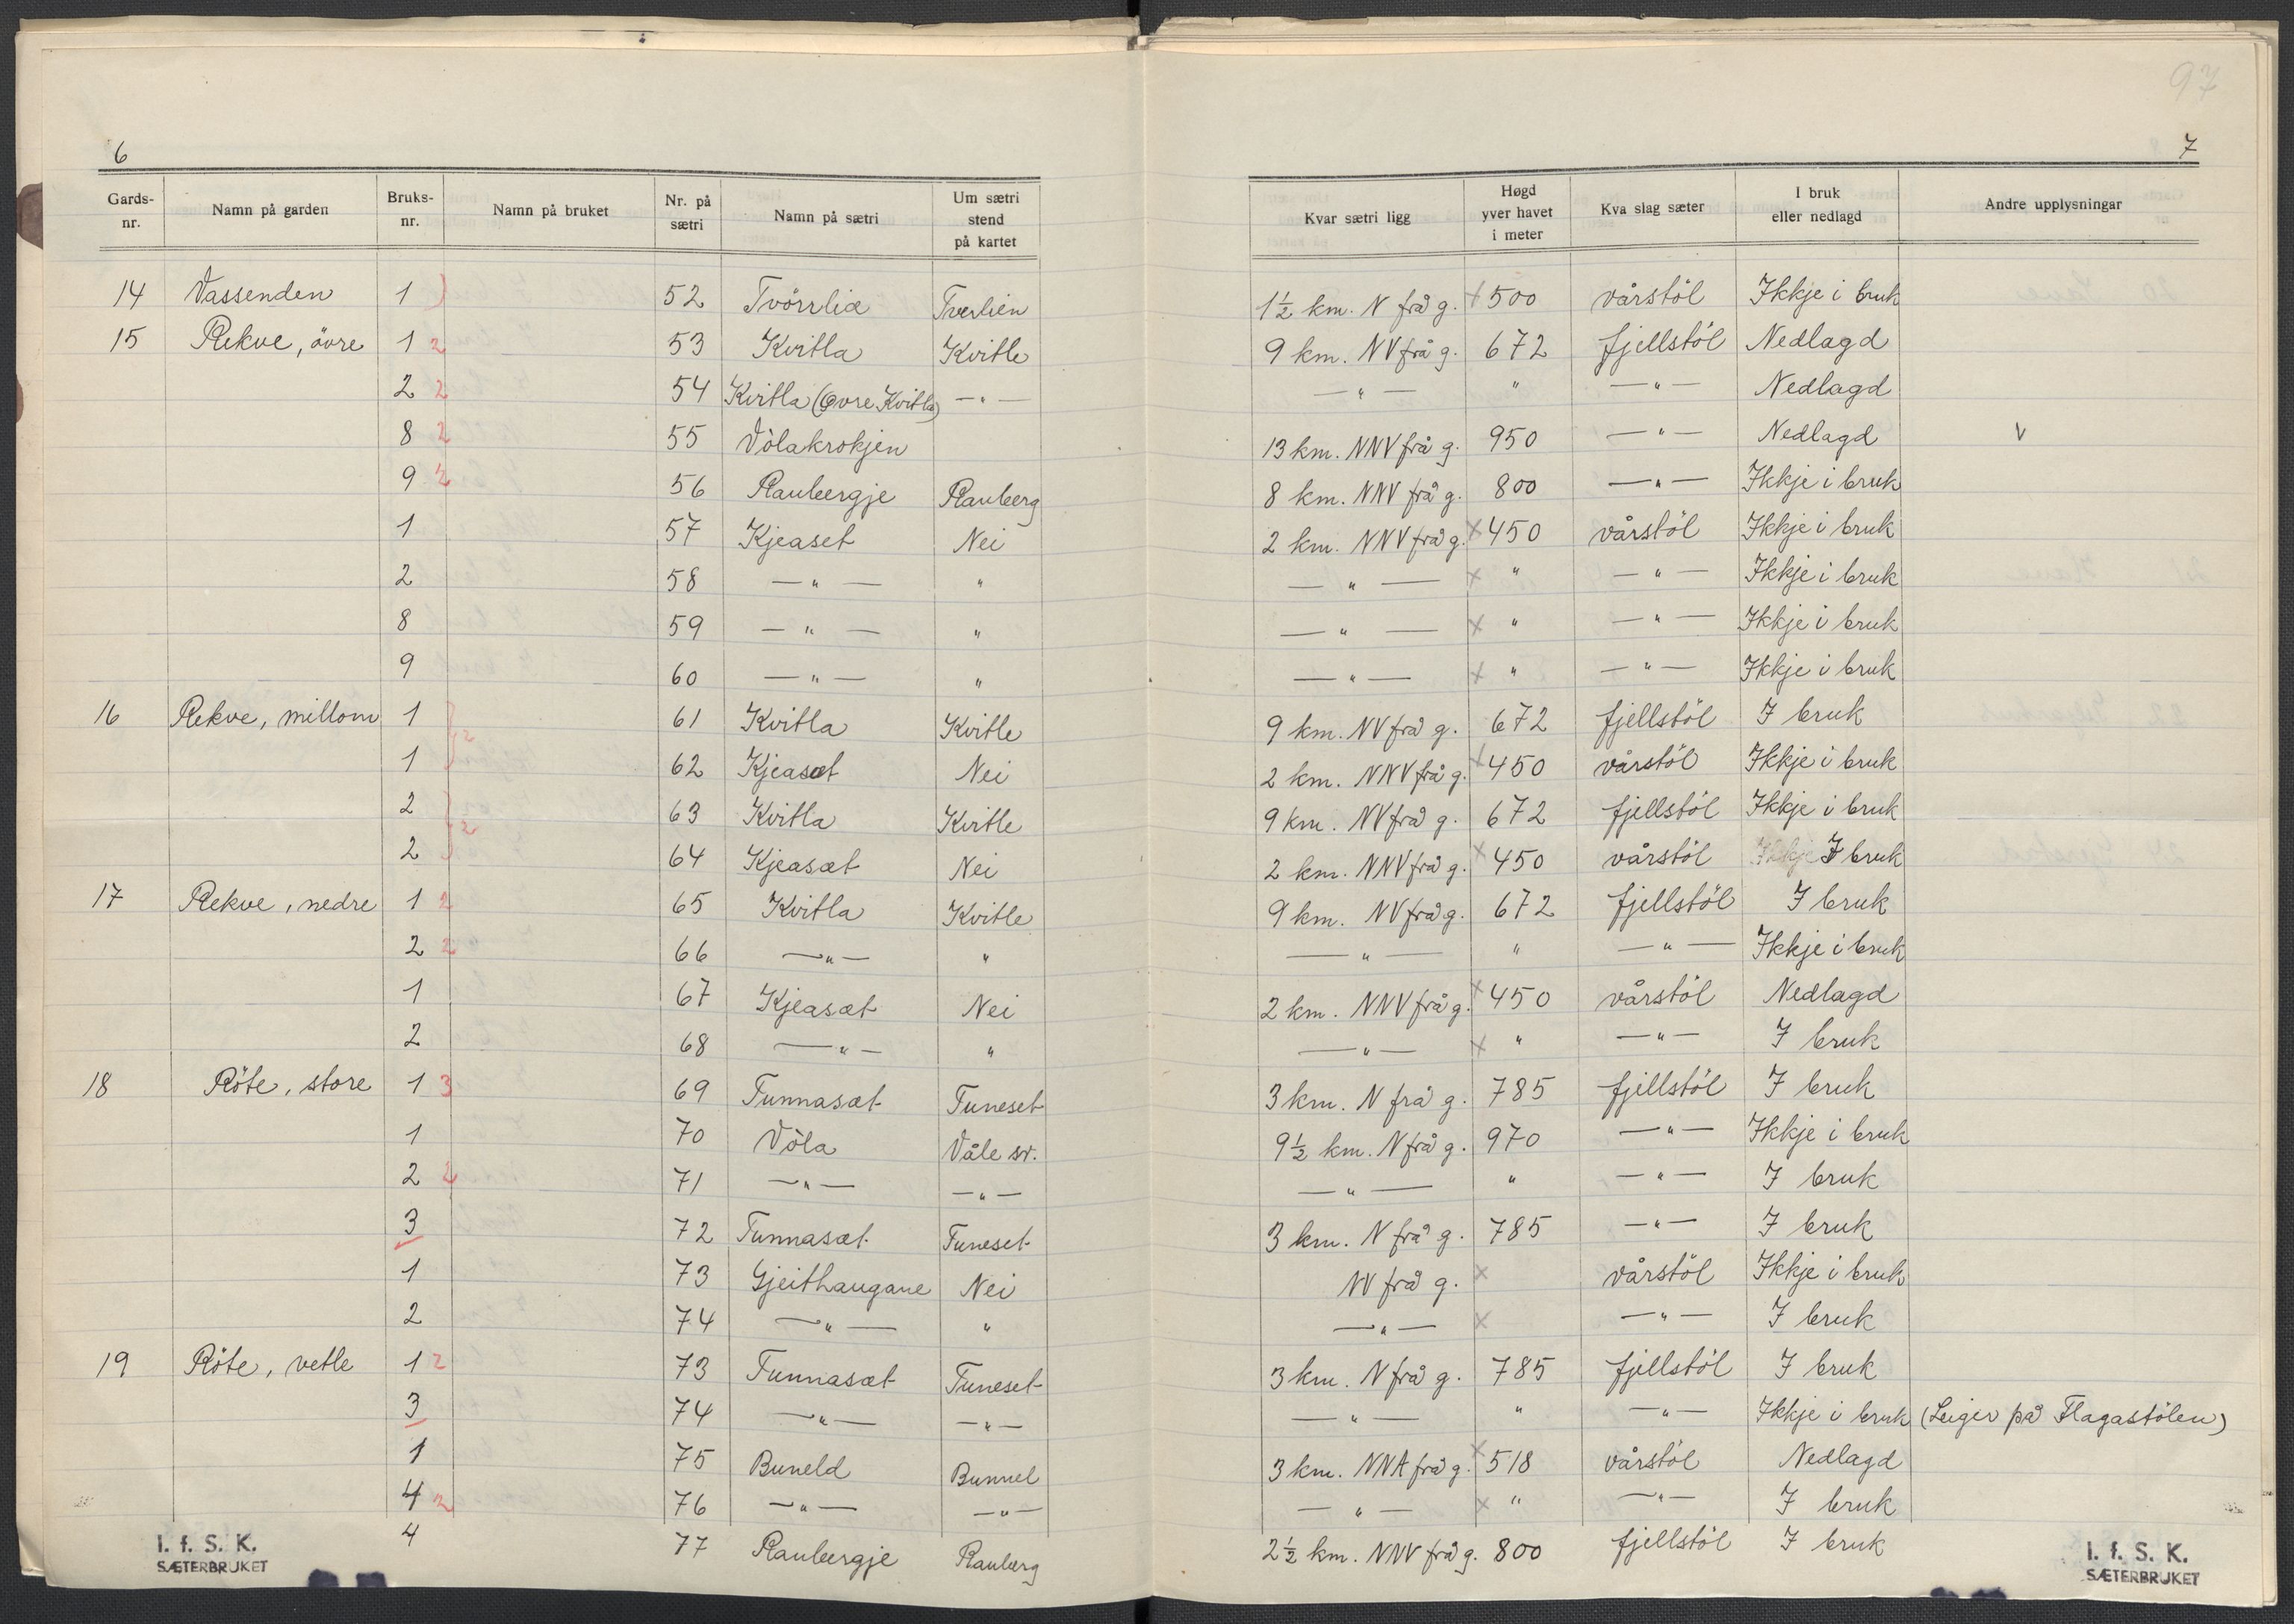 97
6
7
Gards-nr. | Namn på garden | Bruks-nr. | Namn på bruket | Nr. på sætri | Namn på sætri | Um sætri stend på kartet | Kvar sætri ligg | Høgd yver havet i meter | Kva slag sæter | I bruk eller nedlagd | Andre upplysningar
14 Vassenden 1 ) 52 Tvörrlia Tverlien 1½ km. N frå g. x 500 vårstöl Ikkje i bruk
15 Rekve, övre 1 2 53 Kvitla Kvitle 9 km. NV frå g. 672 fjellstöl Nedlagd
2 2 54 Kvitla (Øvre Kvitla) —"— —"— " —"— Nedlagd
8 2 55 Völakrokjen 13 km. NNV frå g. 950 —"— Nedlagd V
9 2 56 Raubergje Rauberg 8 km. NNV frå g. 800 —"— Ikkje i bruk
1 57 Kjeaset Nei 2 km. NNV frå g. x 450 vårstöl Ikkje i bruk
2 58 —"— " —"— x " —"— Ikkje i bruk
8 59 —"— " —"— x " —"— Ikkje i bruk
9 60 —"— " —"— x " —"— Ikkje i bruk
16 Rekve, millom 1 } 2 61 Kvitla Kvitle 9 km. NV frå g. 672 fjellstöl I bruk
1 62 Kjeasæt Nei 2 km. NNV frå g. x 450 vårstöl Ikkje i bruk
2 } 2 63 Kvitla Kvitle 9 km. NV frå g. 672 fjellstöl Ikkje i bruk
2 64 Kjeasæt Nei 2 km. NNV frå g. x 450 vårstöl I bruk
17 Rekve, nedre 1 2 65 Kvitla Kvitle 9 km. NV frå g. 672 fjellstöl I bruk
2 2 66 —"— " —"— " —"— Ikkje i bruk
1 67 Kjeasæt Nei 2 km. NNV frå g. x 450 vårstöl Nedlagd
2 68 —"— " —"— x " —"— I bruk
18 Röte, store 1 3 69 Tunnasæt Tuneset 3 km. N frå g. 785 fjellstöl I bruk
1 70 Völa Våle sr. 9½ km. N frå g. 970 —"— Ikkje i bruk
2 2 71 —"— —"— —"— " —"— I bruk
3 72 Tunnasæt Tuneset 3 km. N frå g. 785 —"— I bruk
1 73 Gjeithaugane Nei NV frå g. x vårstöl Ikkje i bruk
2 74 —"— " —"— x —"— I bruk
19 Röte, vetle 1 2 73 Tunnasæt Tuneset 3 km. N frå g. 785 fjellstöl I bruk
3 74 —"— —"— —"— " —"— Ikkje i bruk (Leiger på Flagastölen)
1 75 Buneld Bunnel 3 km. NNA frå g. x 518 vårstöl Nedlagd
4 2 76 —"— —"— —"— x " —"— I bruk
4 77 Raubergje Rauberg 2½ km. NNV frå g. 800 fjellstöl I bruk
I. f. S. K.
SÆTERBRUKET
I. f. S. K.
SÆTERBRUKET